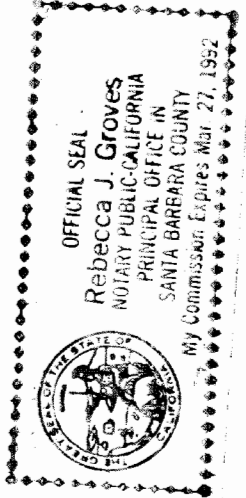 OFFICIAL SEAL
Rebecca J. Groves
NOTARY PUBLIC-CALIFORNIA
PRINCIPAL OFFICE IN
SANTA BARBARA COUNTY
My Commission Expires Mar. 27, 1992
THE GREAT SEAL OF THE STATE OF CALIFORNIA